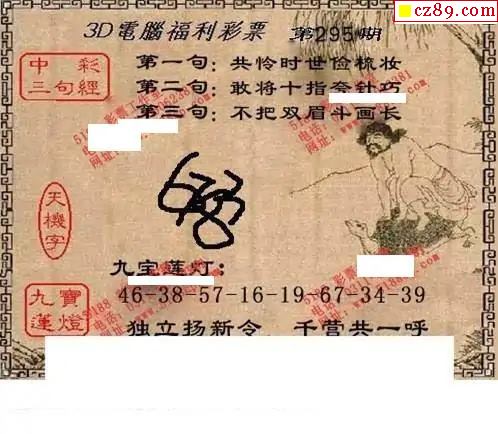 cz89.com
3D電腦福利彩票 第295期
中彩
三句經
第一句：共怜时世俭梳妆
第二句：敢将十指夸针巧
第三句：不把双眉斗画长
天機字
九宝莲灯：
46-38-57-16-19-67-34-39
九寶
蓮燈
独立扬新令，千营共一呼